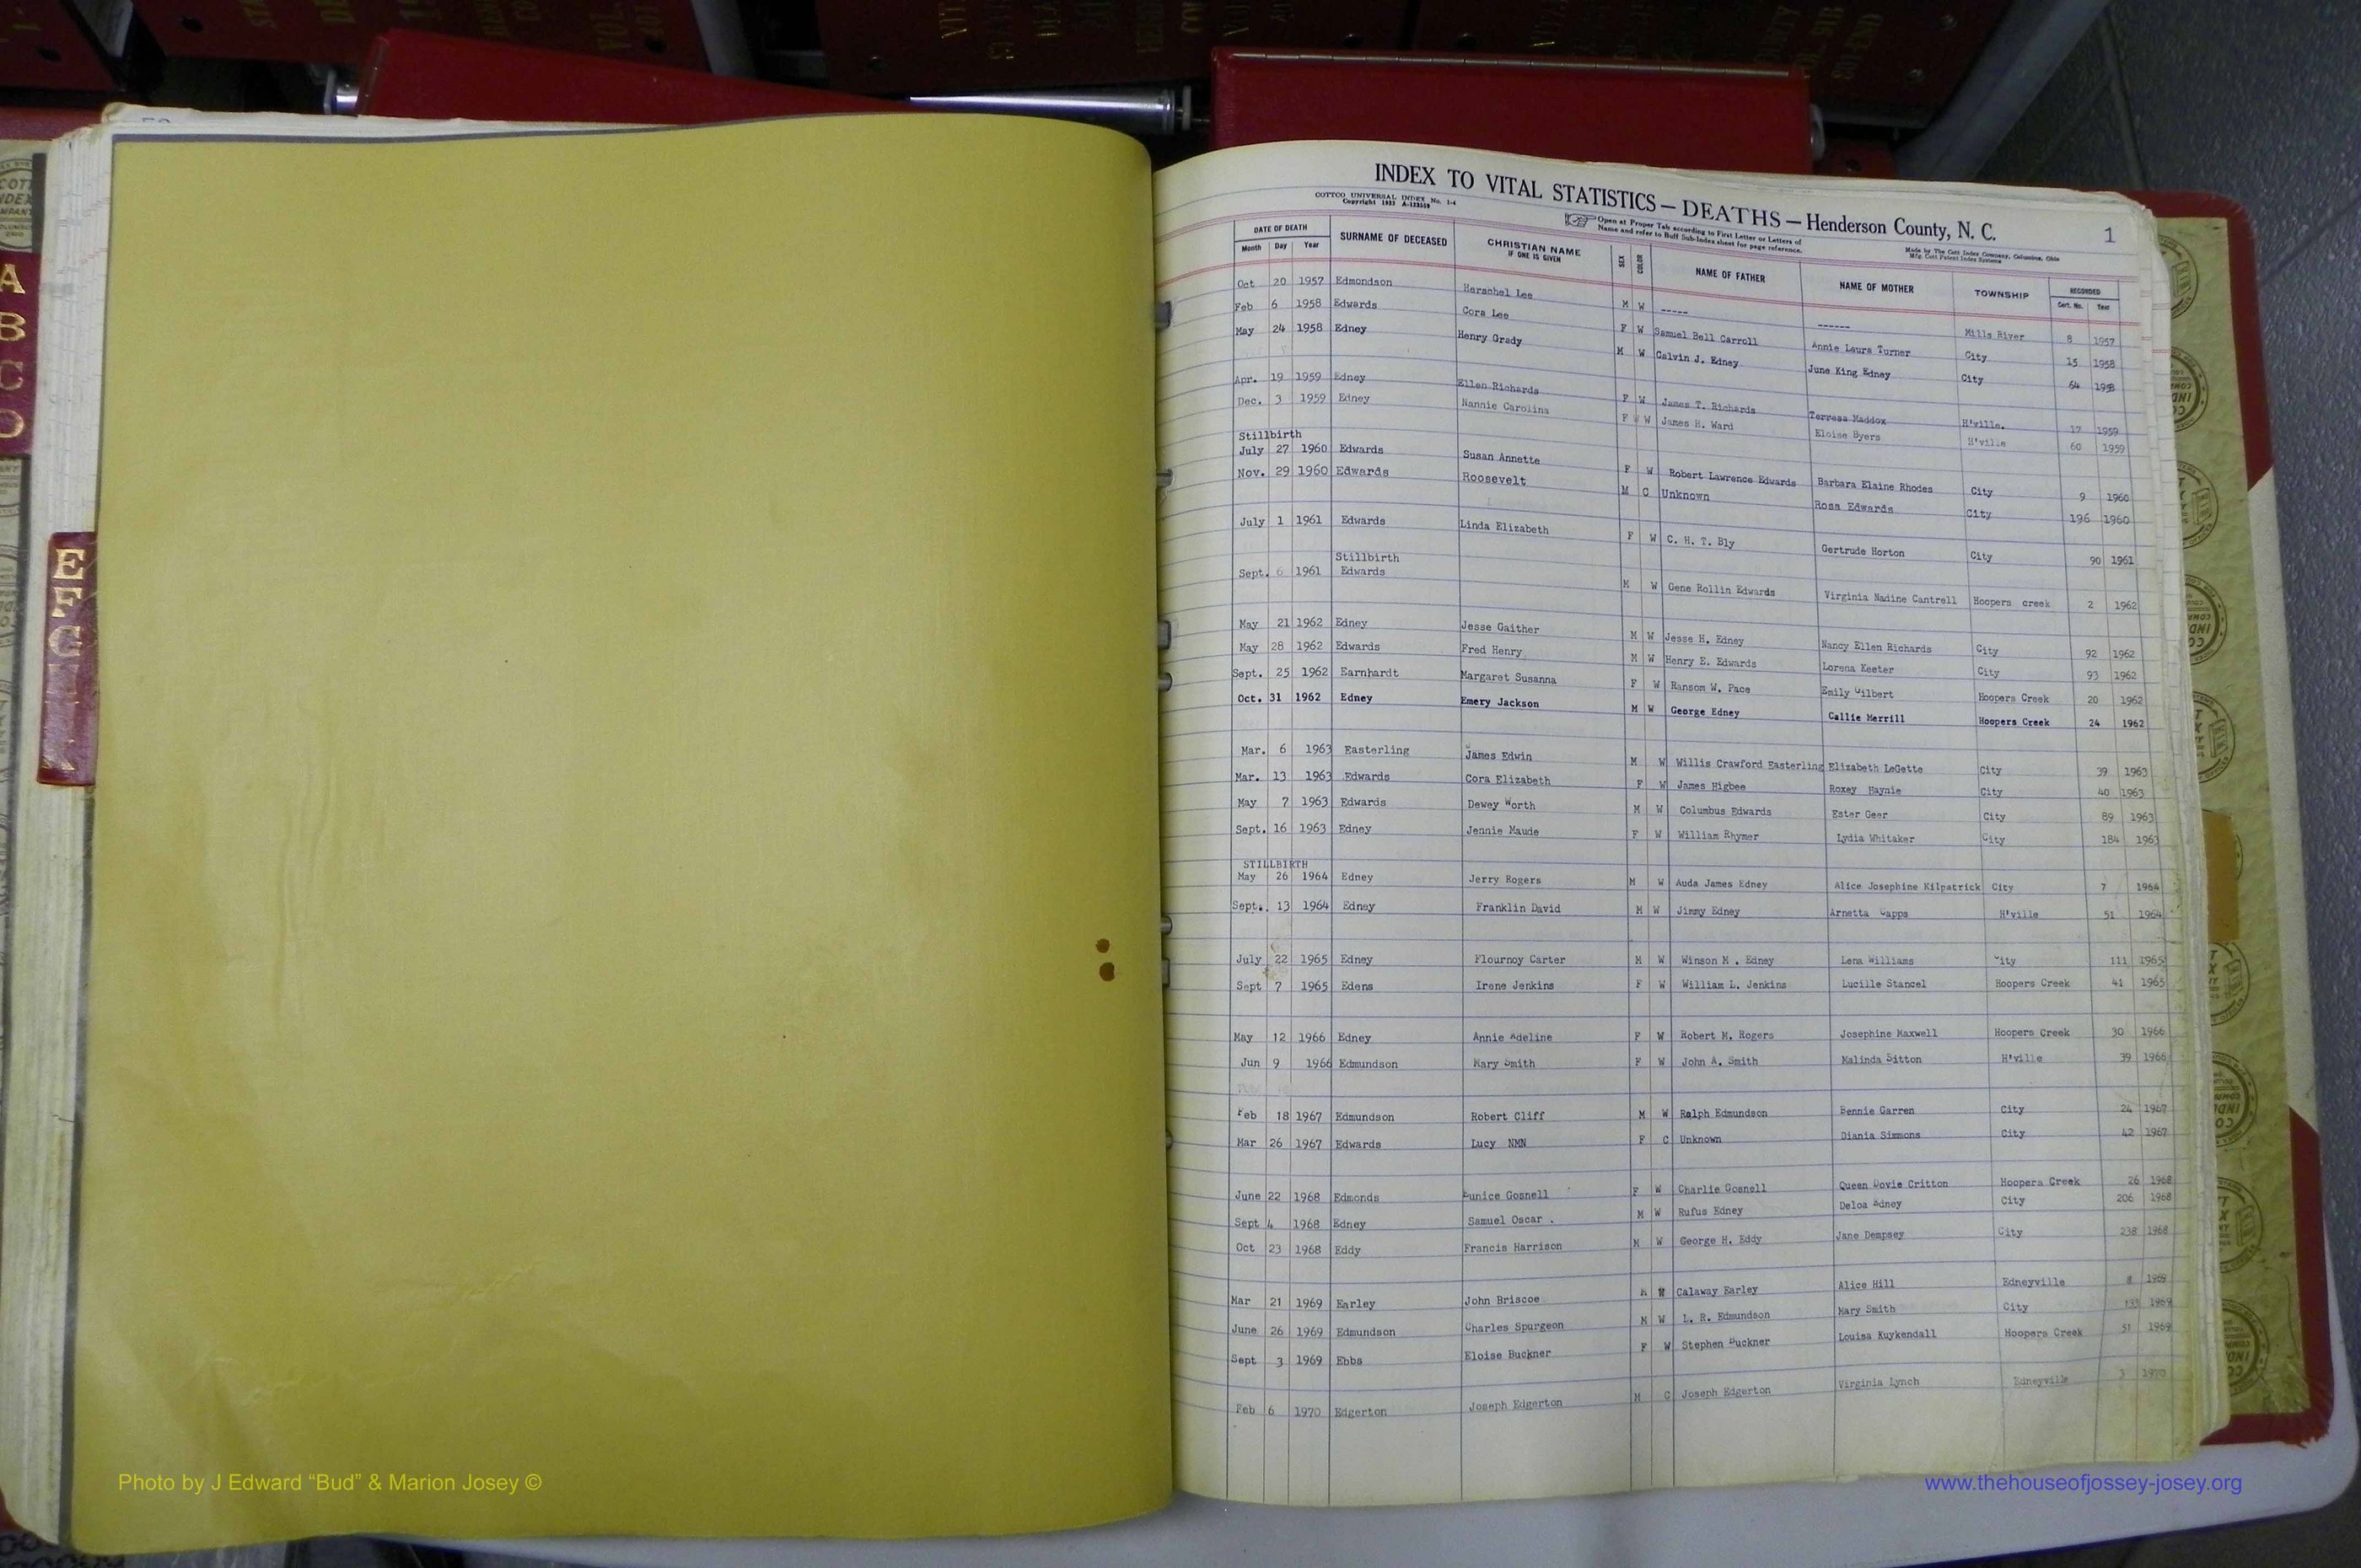 INDEX TO VITAL STATISTICS — DEATHS — Henderson County, N. C.
1
COTTCO UNIVERSAL INDEX No. 1-4
Copyright 1933 A-123569
Open at Proper Tab according to First Letter or Letters of
Name and refer to Buff Sub-Index sheet for page reference.
Made by The Cott Index Company, Columbus, Ohio
Mfg. Cott Patent Index Systems
DATE OF DEATH SURNAME OF DECEASED CHRISTIAN NAME IF ONE IS GIVEN SEX COLOR NAME OF FATHER NAME OF MOTHER TOWNSHIP RECORDED
Month Day Year Cert. No. Year
Oct 20 1957 Edmondson Herschel Lee M W ----- ------ Mills River 8 1957
Feb 6 1958 Edwards Cora Lee F W Samuel Bell Carroll Annie Laura Turner City 15 1958
May 24 1958 Edney Henry Grady M W Calvin J. Edney June King Edney City 64 1958
Apr. 19 1959 Edney Ellen Richards F W James T. Richards Terressa Maddox H'ville. 17 1959
Dec. 3 1959 Edney Nannie Carolina F W James H. Ward Eloise Byers H'ville 60 1959
Stillbirth
July 27 1960 Edwards Susan Annette F W Robert Lawrence Edwards Barbara Elaine Rhodes City 9 1960
Nov. 29 1960 Edwards Roosevelt M C Unknown Rosa Edwards City 196 1960
July 1 1961 Edwards Linda Elizabeth F W C. H. T. Bly Gertrude Horton City 90 1961
Stillbirth
Sept. 6 1961 Edwards M W Gene Rollin Edwards Virginia Nadine Cantrell Hoopers creek 2 1962
May 21 1962 Edney Jesse Gaither M W Jesse H. Edney Nancy Ellen Richards City 92 1962
May 28 1962 Edwards Fred Henry M W Henry E. Edwards Lorena Keeter City 93 1962
Sept. 25 1962 Earnhardt Margaret Susanna F W Ransom W. Pace Emily Gilbert Hoopers Creek 20 1962
Oct. 31 1962 Edney Emery Jackson M W George Edney Callie Merrill Hoopers Creek 24 1962
Mar. 6 1963 Easterling James Edwin M W Willis Crawford Easterling Elizabeth LeGette City 39 1963
Mar. 13 1963 Edwards Cora Elizabeth F W James Higbee Roxey Haynie City 40 1963
May 7 1963 Edwards Dewey Worth M W Columbus Edwards Ester Geer City 89 1963
Sept. 16 1963 Edney Jennie Maude F W William Rhymer Lydia Whitaker City 184 1963
STILLBIRTH
May 26 1964 Edney Jerry Rogers M W Auda James Edney Alice Josephine Kilpatrick City 7 1964
Sept. 13 1964 Edney Franklin David M W Jimmy Edney Arnetta Capps H'ville 51 1964
July 22 1965 Edney Flournoy Carter M W Winson M. Edney Lena Williams City 111 1965
Sept 7 1965 Edens Irene Jenkins F W William L. Jenkins Lucille Stancel Hoopers Creek 41 1965
May 12 1966 Edney Annie Adeline F W Robert M. Rogers Josephine Maxwell Hoopers Creek 30 1966
Jun 9 1966 Edmundson Mary Smith F W John A. Smith Malinda Sitton H'ville 39 1966
Feb 18 1967 Edmundson Robert Cliff M W Ralph Edmundson Bennie Garren City 24 1967
Mar 26 1967 Edwards Lucy NMN F C Unknown Diania Simmons City 42 1967
June 22 1968 Edmonds Eunice Gosnell F W Charlie Gosnell Queen Dovie Critton Hoopers Creek 26 1968
Sept 4 1968 Edney Samuel Oscar . M W Rufus Edney Deloa Edney City 206 1968
Oct 23 1968 Eddy Francis Harrison M W George H. Eddy Jane Dempsey City 238 1968
Mar 21 1969 Earley John Briscoe Calaway Earley Alice Hill Edneyville 8 1969
June 26 1969 Edmundson Charles Spurgeon M W L. R. Edmundson Mary Smith City 1969
Sept 3 1969 Ebbs Eloise Buckner F W Stephen Buckner Louisa Kuykendall Hoopers Creek 51 1969
Feb 6 1970 Edgerton Joseph Edgerton M C Joseph Edgerton Virginia Lynch Edneyville 3 1970
A
B
C
D
E
F
G
Photo by J Edward “Bud” & Marion Josey ©
www.thehouseofjossey-josey.org